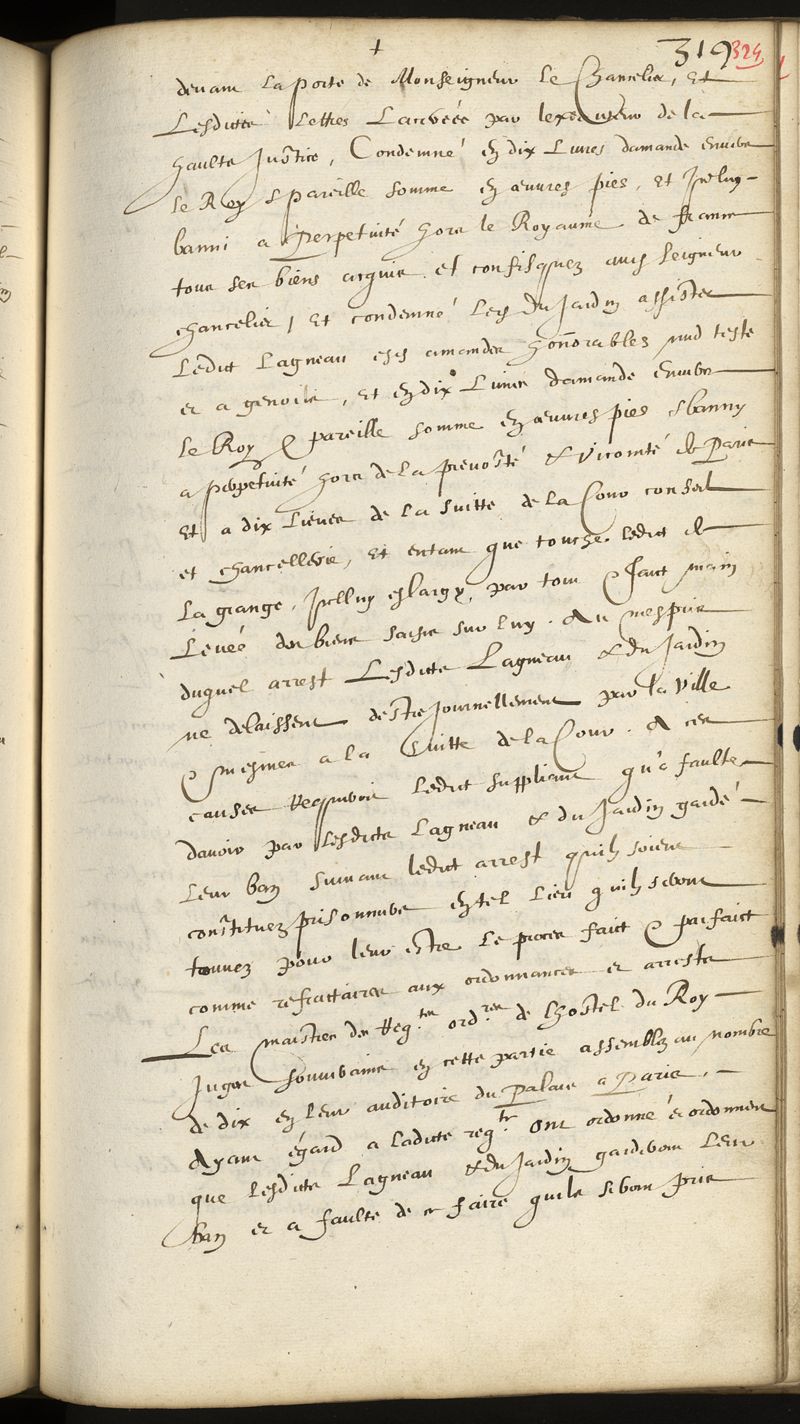 319 324
devant la porte de Monseigneur le Chancelier, Et
Lesdittes lettres Lacereés par lexecuteur de la
haulte Justice, Condemné en dix Livres damande envers
le Roy & pareille somme en œuvres pies, Et Iceluy
banni a Perpetuité hors le Royaume de france
tous ses biens acquis et confisquez audit seigneur
chancelier, Et condemné Led du Jardin assister
Ledict Lagneau esd amandes honnorables nud teste
et a genoile, Et en dix Livres damande Envers
le Roy & pareille somme en œuvres pies & banny
a perpetuité hors de la prevosté & Viconté de Paris
Et a dix Lieues de la suitte de la Cour conseil
et chancellerie, Et entant que touche ledict de
La grange, Icelluy eslargy, par tout & faict main
Levée des biens saisis sur luy. Au mespris
duquel arrest Lesdicts Lagneau & du Jardin
ne delaissent destre Journellement par la Ville
& mesmes a la suitte de la Cour. A ces
causes Requeroit ledict suppliant qu'a faulte
davoir par lesdicts Lagneau & du Jardin gardé
leur ban suivant ledict arrest quilz soient
constituez prisonniers en tel lieu quilz seront
trouvez pour leur estre le proces faict & parfaict
comme refrattaires aux ordonnances et arrests
Les maistres des Reqtes ordres de lhostel du Roy
Juges souverains en cette partie assemblez au nombre
de dix en leur auditoire du Palais a Paris,
Ayant égard a ladicte reqte ont ordonné & ordonnent
que lesdicts Lagneau & du Jardin garderont leur
ban et a faulte de ce faire quils seront pris